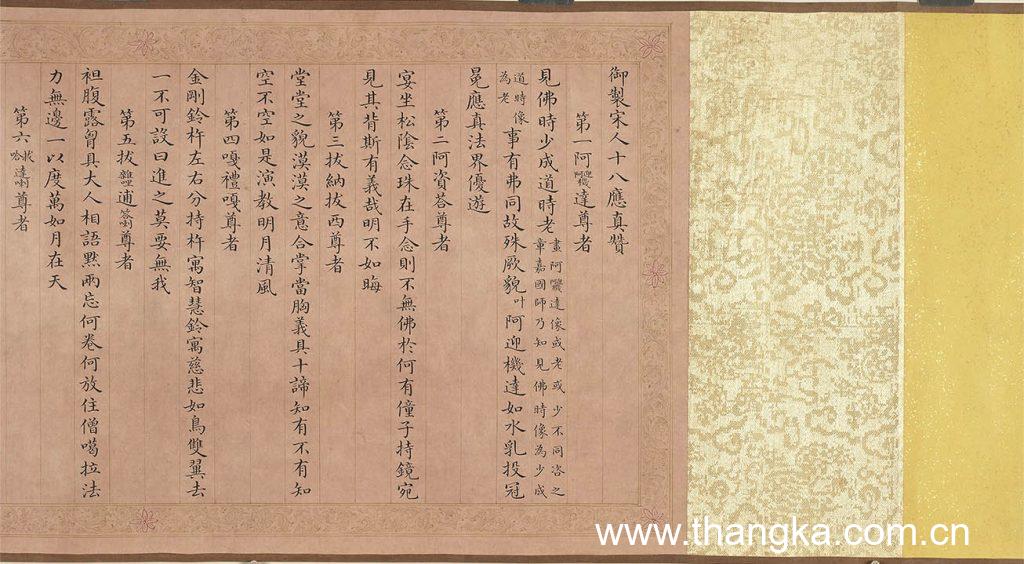 御製宋人十八應真贊
第一阿迎阿機達尊者
見佛時少成道時老畫阿機達像或老或少不同咨之章嘉國師乃知見佛時像為少成
道時像為老事有弗同故殊厥貌叶阿迎機達如水乳投冠
冕應真法界優遊
第二阿資荅尊者
宴坐松陰念珠在手念則不無佛於何有僮子持鏡宛
見其背斯有義哉明不如晦
第三拔納拔西尊者
堂堂之貌漠漠之意合掌當胸義具十諦知有不有知
空不空如是演教明月清風
第四嘎禮嘎尊者
金剛鈴杵左右分持杵寓智慧鈴寓慈悲如鳥雙翼去
一不可設曰進之莫要無我
第五拔雜哩逋荅喇尊者
袒腹露胷具大人相語默兩忘何卷何放住僧噶拉法
力無邊一以度萬如月在天
第六拔哈達喇尊者
www.thangka.com.cn